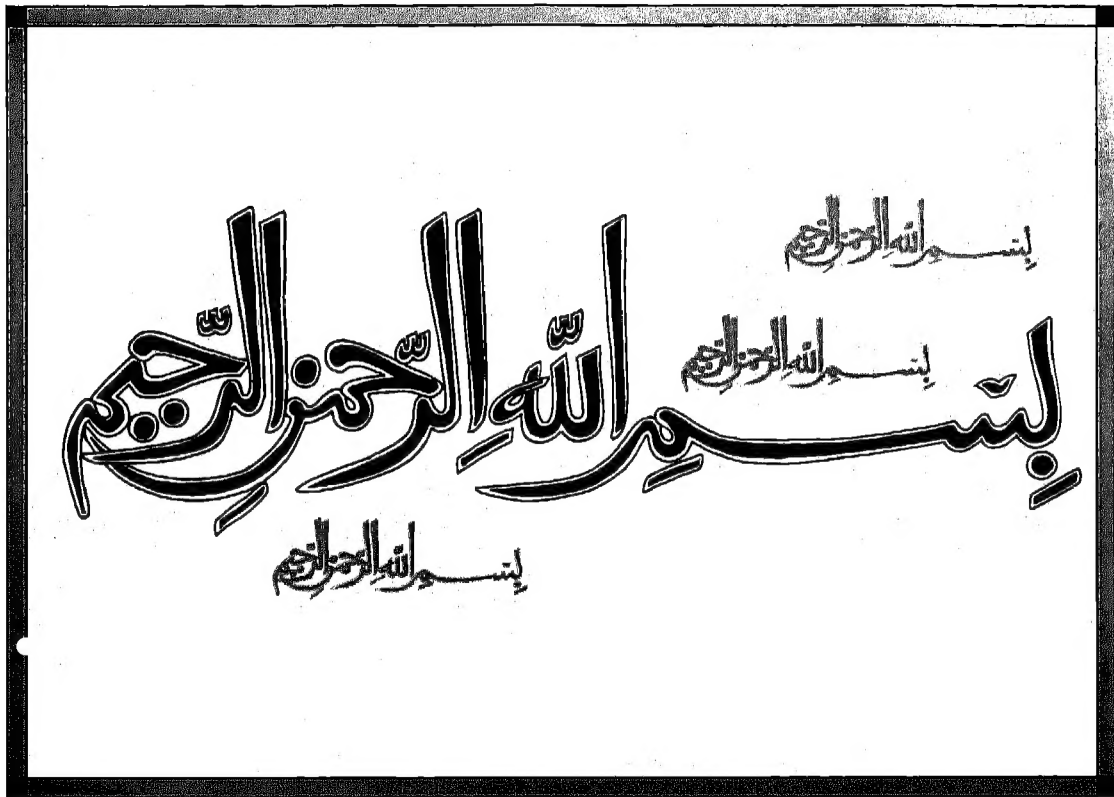 بِسْمِ اللّٰهِ الرَّحْمٰنِ الرَّحِيمِ
بِسْمِ اللّٰهِ الرَّحْمٰنِ الرَّحِيمِ
بِسْمِ اللّٰهِ الرَّحْمٰنِ الرَّحِيمِ
بِسْمِ اللّٰهِ الرَّحْمٰنِ الرَّحِيمِ